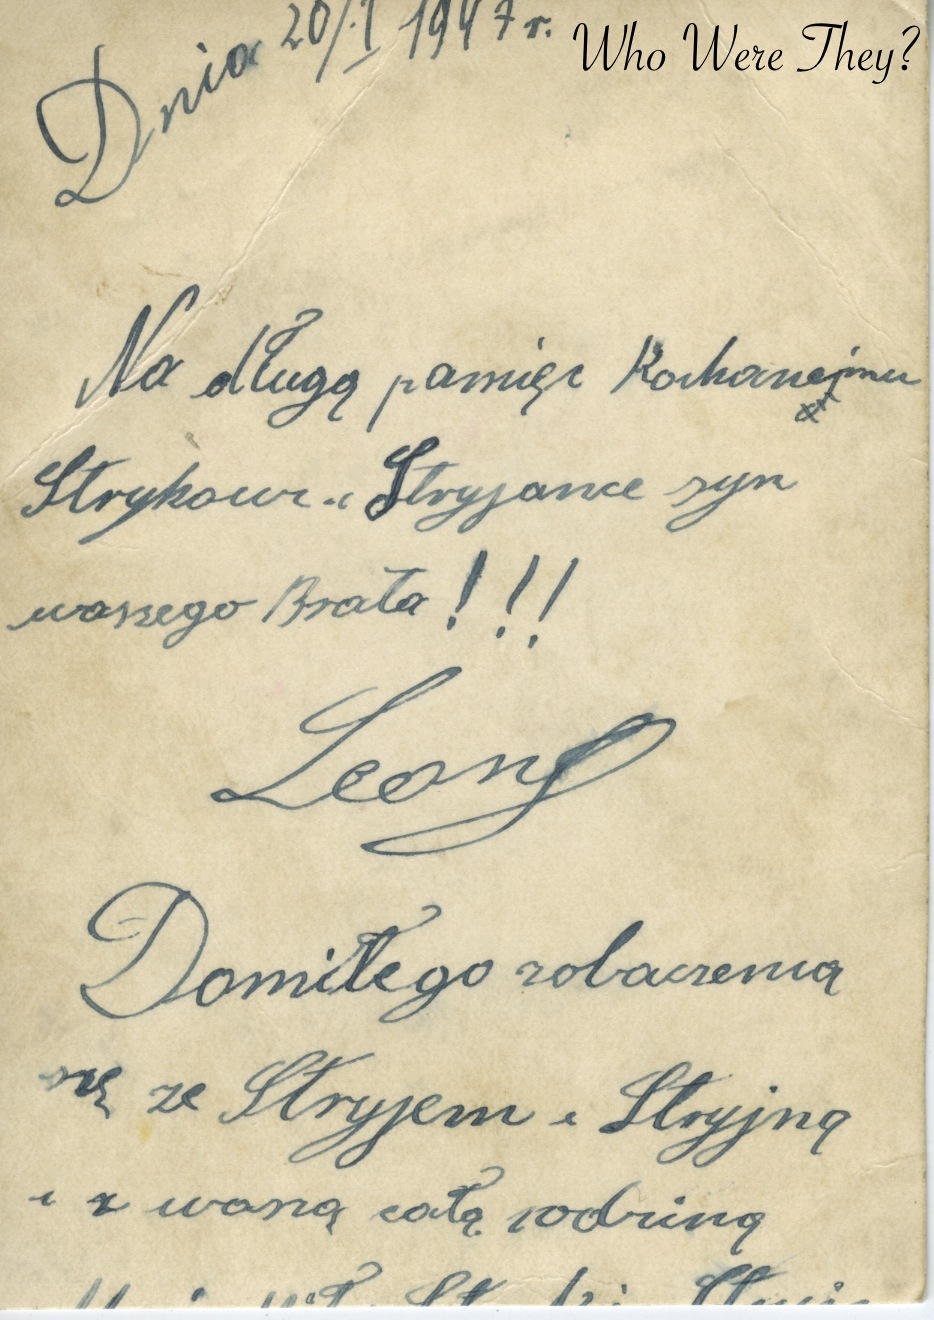 Who Were They?
Dnia 20/I 1947 r.
Na długą pamięć Kochanejmu
Strykowi i Stryjance syn
waszego Brata!!!
Leon
Domiłego zobaczenia
się ze Stryjem i Stryjną
i z waszą całą rodziną